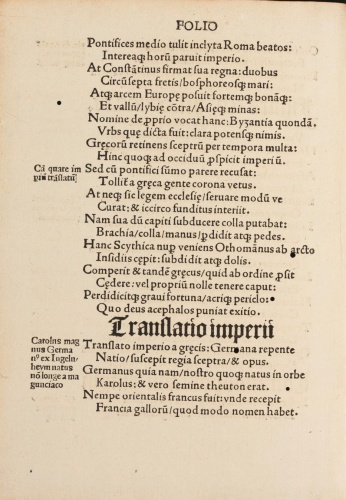 FOLIO
Pontifices medio tulit inclyta Roma beatos:
Intereaqꝫ horũ paruit imperio.
At Cõstãtinus firmat sua regna: duobus
Circũsepta fretis/bosphoreoqꝫ mari:
Atqꝫ arcem Europę posuit fortemqꝫ bonãqꝫ
Et vallũ/lybię cõtra/Asięqꝫ minas:
Nomine de ꝓprio vocat hanc: Byzantia quondã.
Vrbs quę dicta fuit: clara potensqꝫ nimis.
Gręcorũ retinens sceptrũ per tempora multa:
Hinc quoqꝫ ad occiduũ ꝓspicit imperiũ.
Cã quare im
perii trãslatũ
Sed cũ pontifici sũmo parere recusat:
Tollit̃ a gręca gente corona vetus.
At neqꝫ sic legem ecclesię/seruare modũ ve
Curat: & iccirco funditus interiit.
Nam sua dũ capiti subducere colla putabat:
Brachia/colla/manus/ꝑdidit atqꝫ pedes.
Hanc Scythica nuꝑ veniens Othomãnus ab arcto
Insidiis cępit: subdidit atqꝫ dolis.
Comperit & tandẽ gręcus/quid ab ordine ꝓsit
Cędere: vel propriũ nolle tenere caput:
Perdidicitqꝫ graui fortuna/acriqꝫ periclo:
Quo deus acephalos puniat exitio.
Translatio imperii
Carolus mag
nus Germa
nꝰ ex Ingeln/
heym natus
nõ longe a ma
gunciaco
Translato imperio a gręcis: Germana repente
Natio/suscepit regia sceptra/& opus.
Germanus quia nam/nostro quoqꝫ natus in orbe
Karolus: & vero semine theuton erat.
Nempe orientalis francus fuit: vnde recepit
Francia gallorũ/quod modo nomen habet.